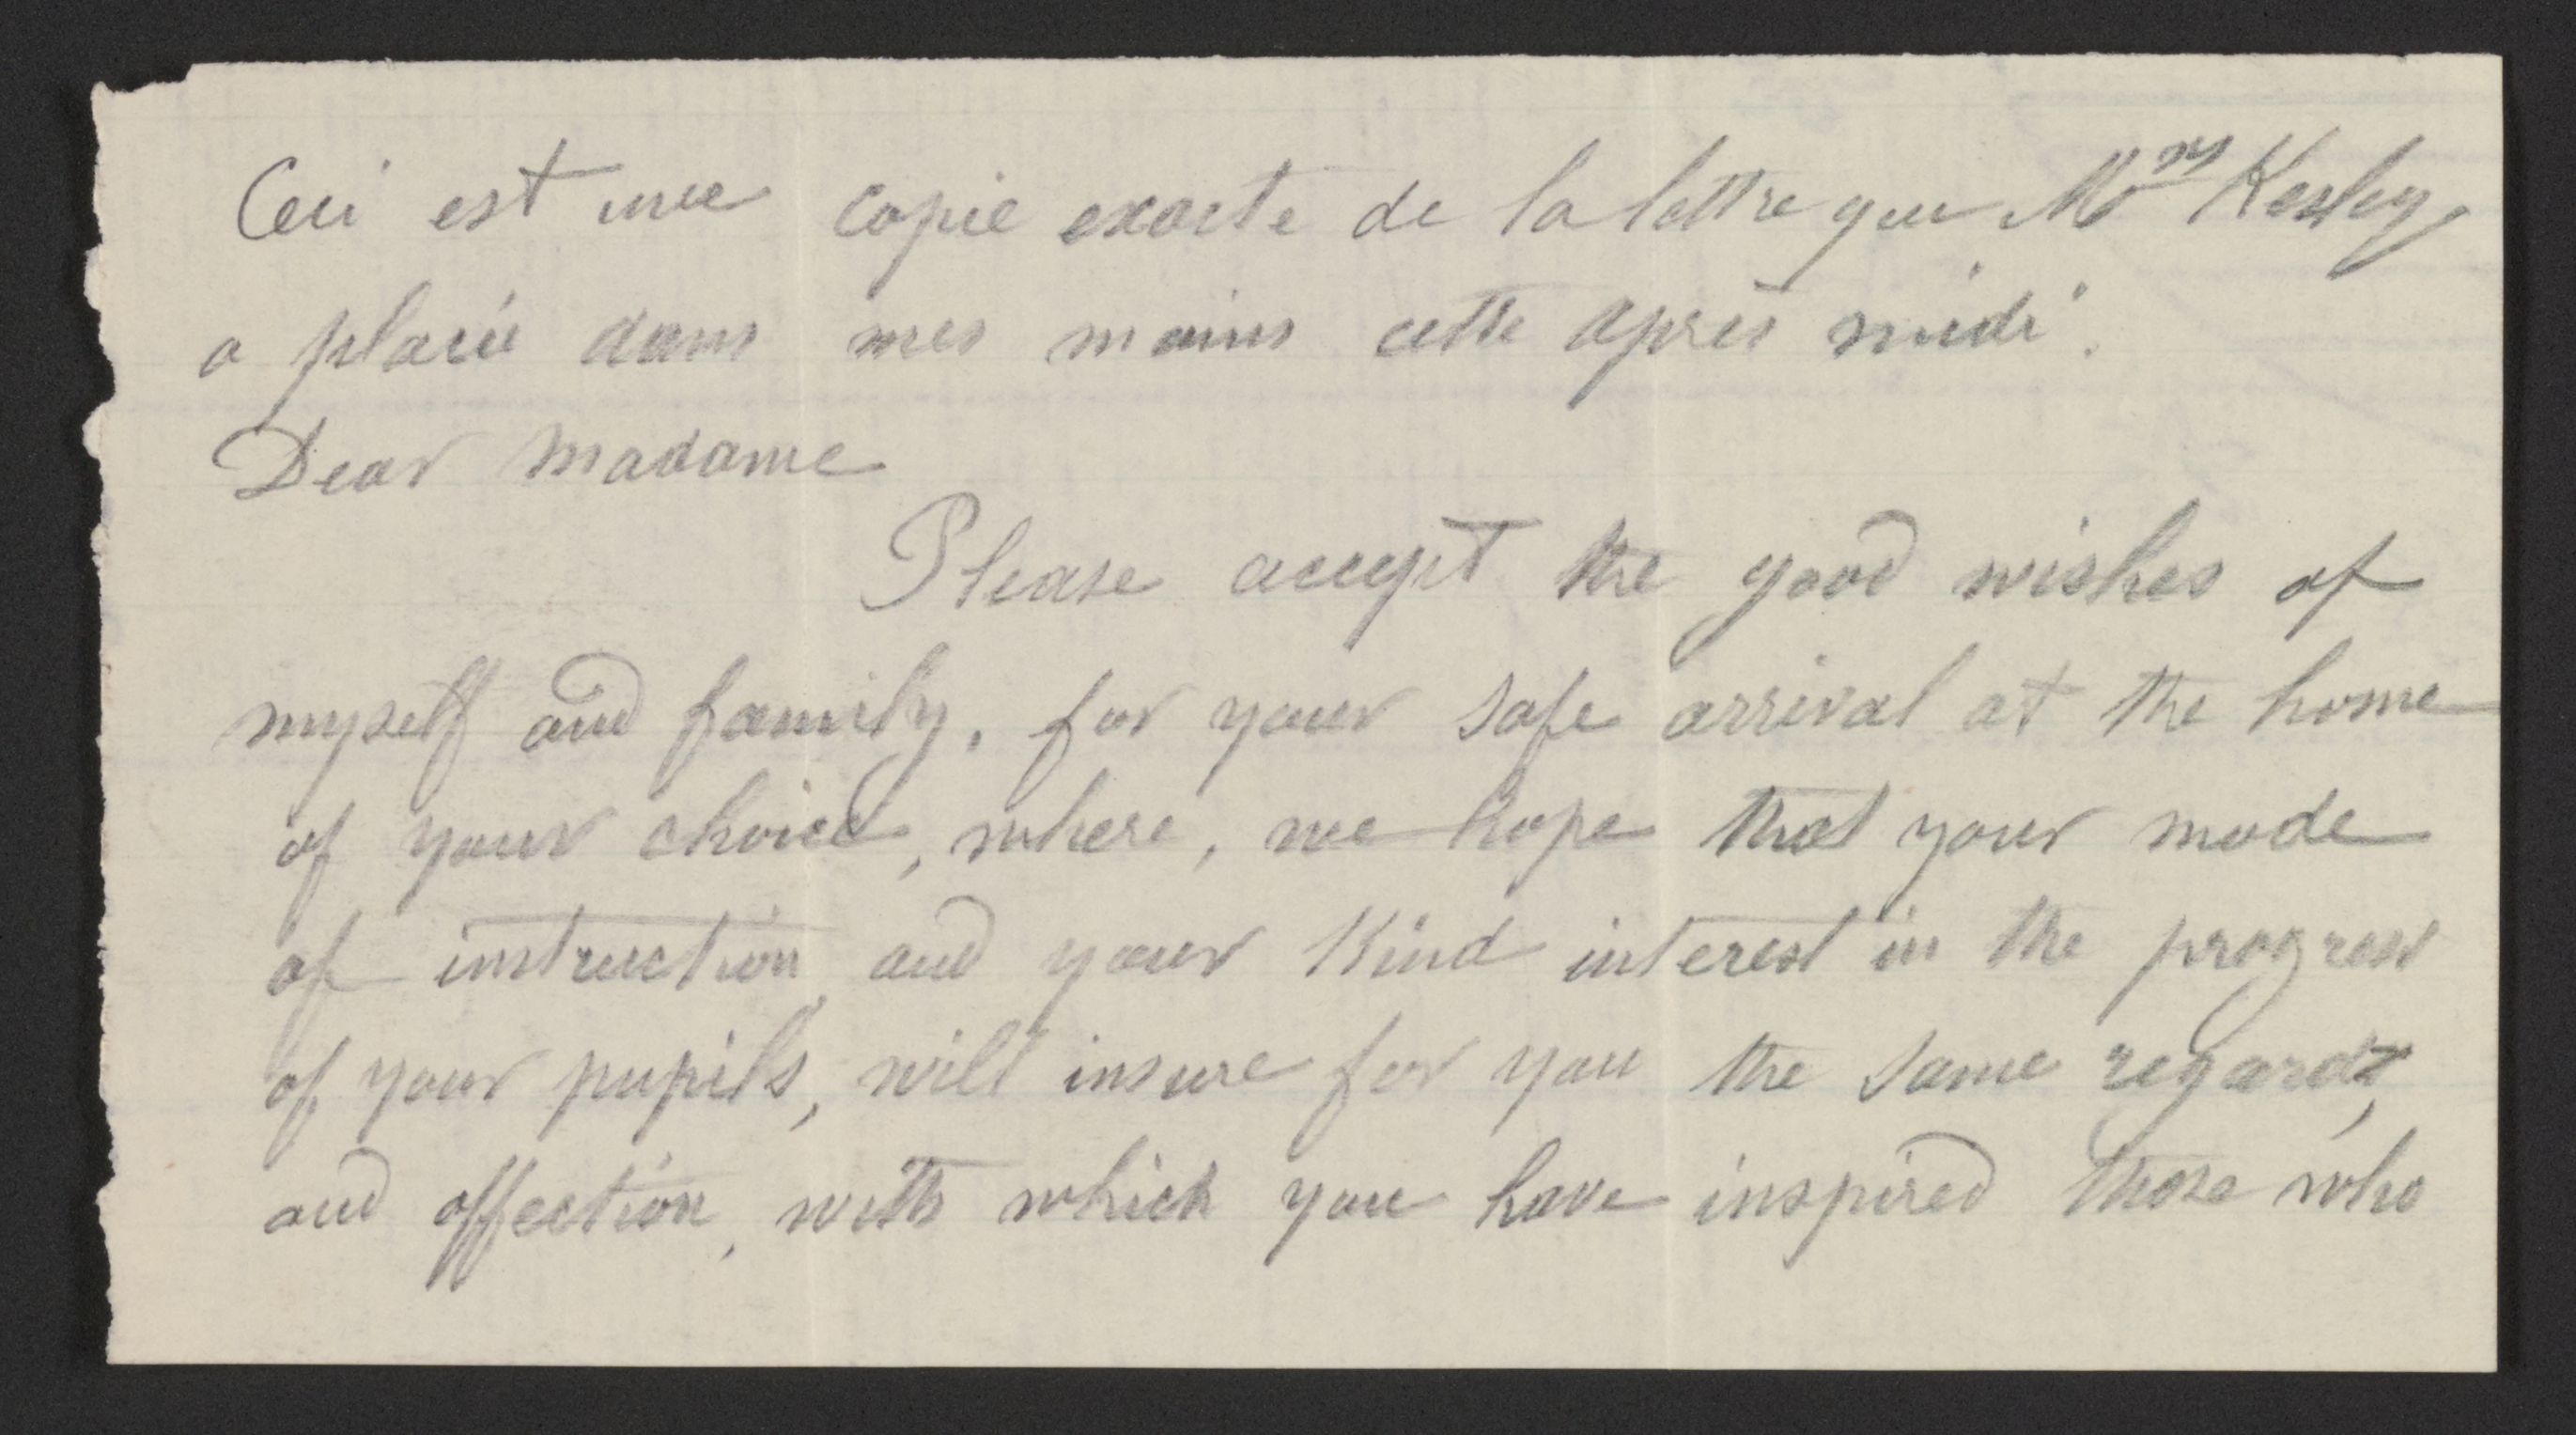 Ceci est une copie exacte de la lettre que Mrs Kesley
a placée dans mes mains cette après midi.
Dear Madame
Please accept the good wishes of
myself and family, for your safe arrival at the home
of your choice, where, we hope that your mode
of instruction and your kind interest in the progress
of your pupils, will insure for you the same regard,
and affection, with which you have inspired those who